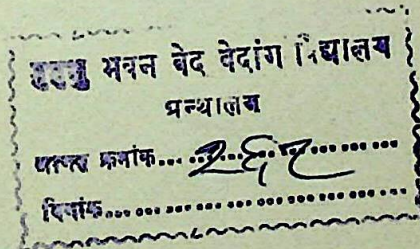 मुमुक्षु भवन वेद वेदांग विद्यालय
ग्रन्थालय
क्रमांक... २६२
दिनांक